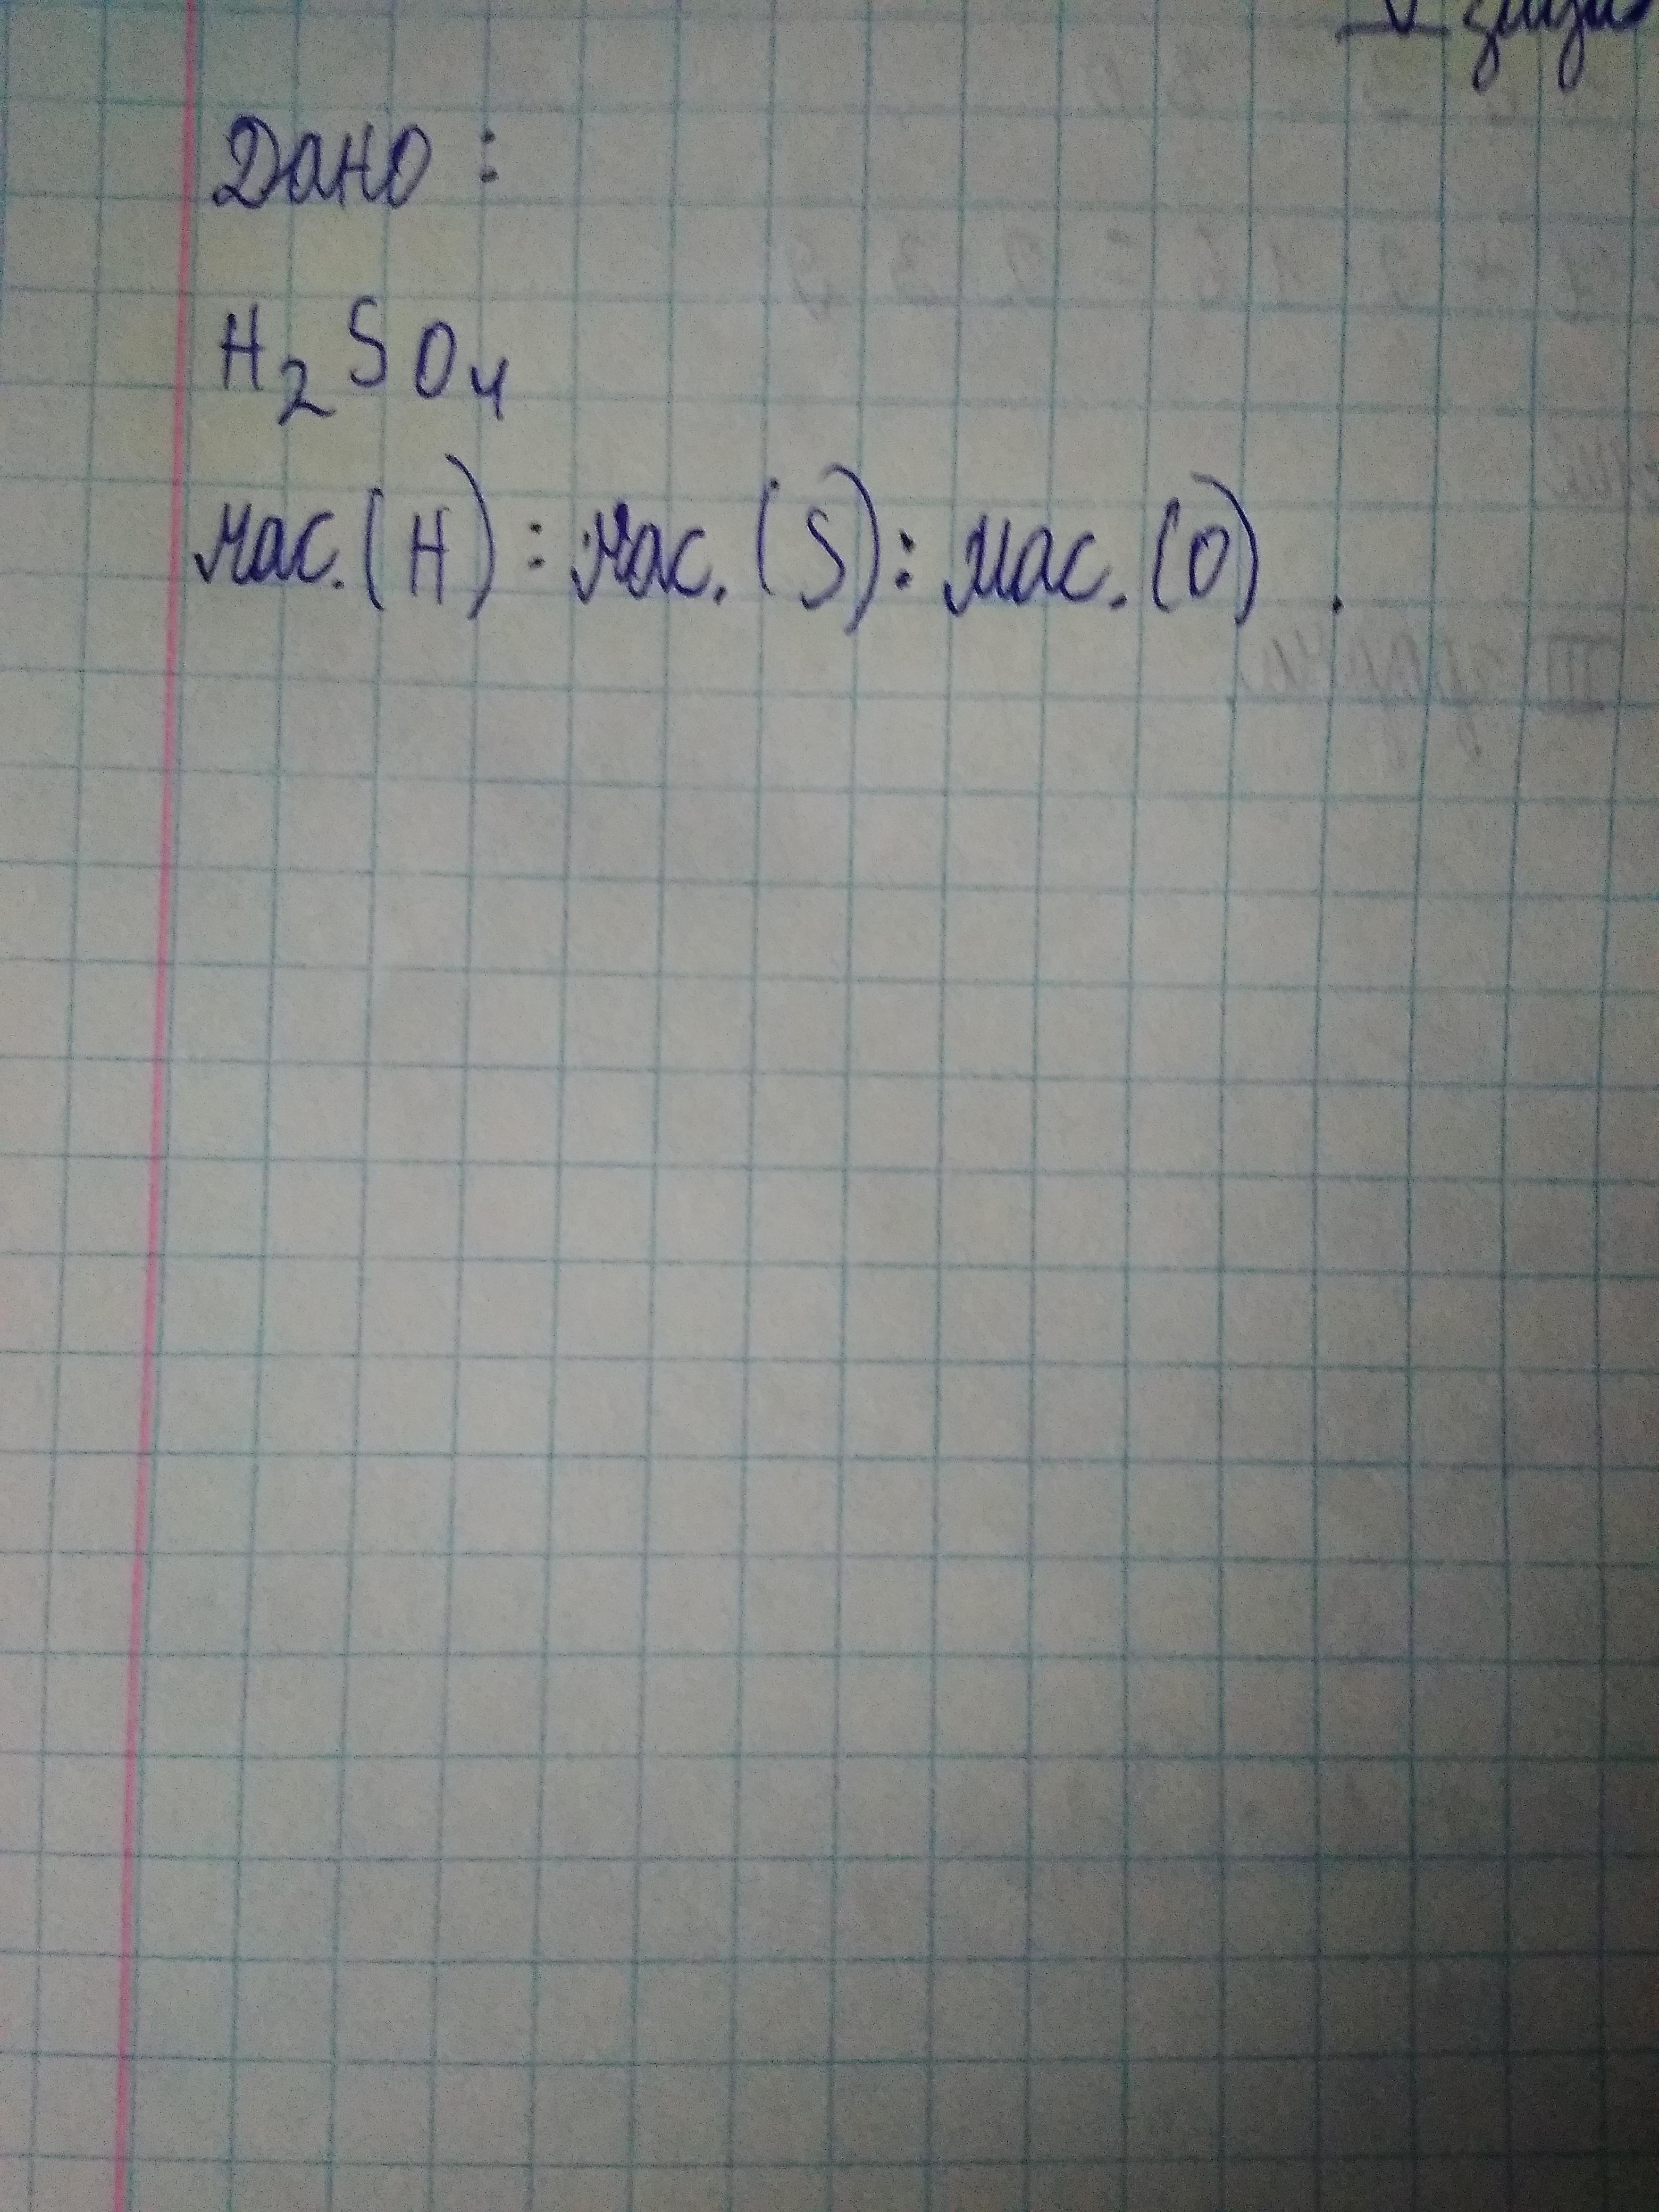 Дано :
H2SO4
мас.(H) : мас.(S) : мас.(O) .